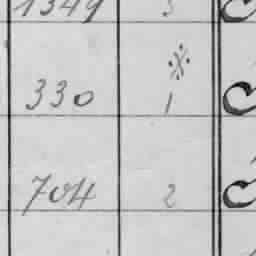 1349 3
※
330 1
704 2